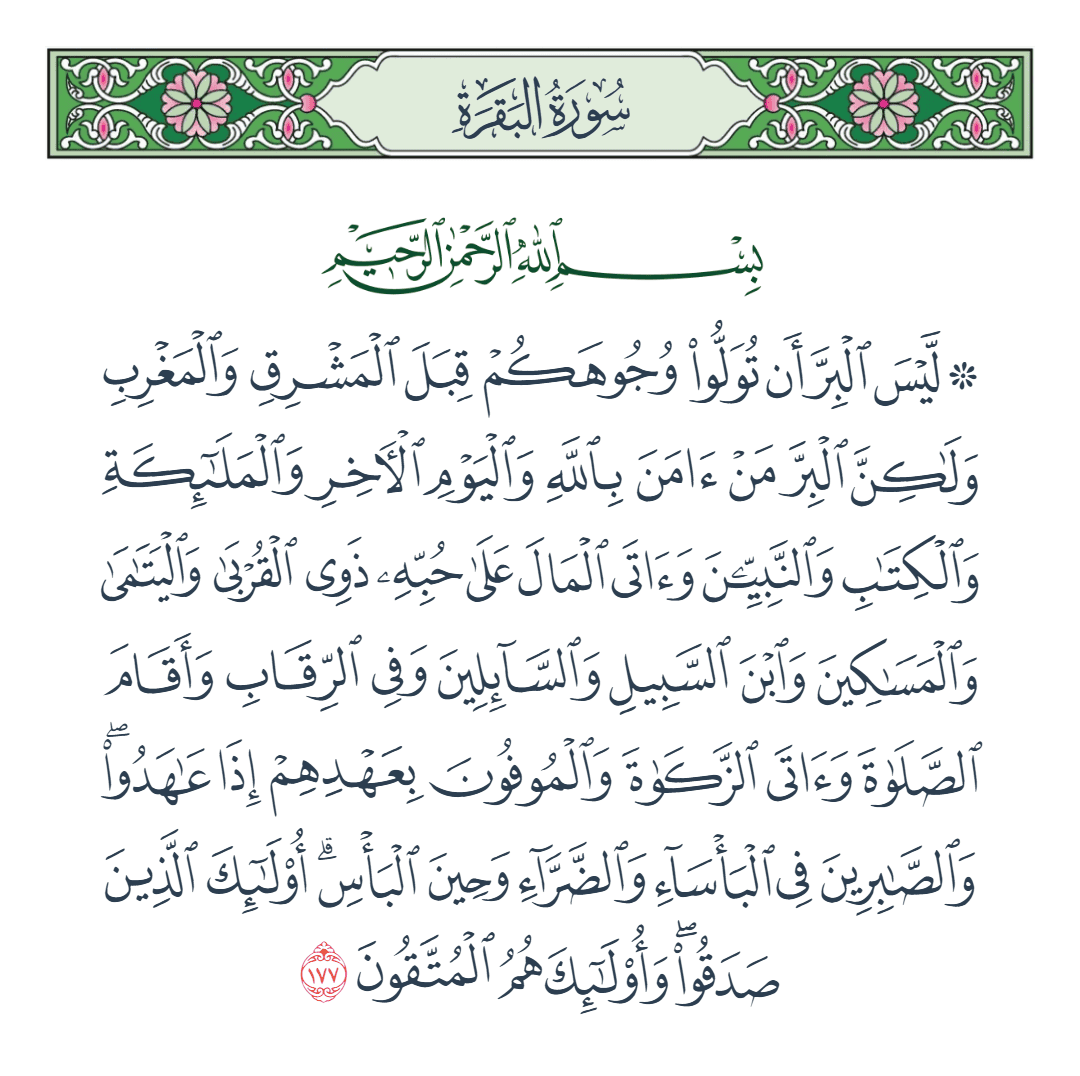 سُورَةُ البَقَرَةِ
بِسْمِ ٱللَّهِ ٱلرَّحْمَٰنِ ٱلرَّحِيمِ
۞ لَّيْسَ ٱلْبِرَّ أَن تُوَلُّوا۟ وُجُوهَكُمْ قِبَلَ ٱلْمَشْرِقِ وَٱلْمَغْرِبِ
وَلَٰكِنَّ ٱلْبِرَّ مَنْ ءَامَنَ بِٱللَّهِ وَٱلْيَوْمِ ٱلْـَٔاخِرِ وَٱلْمَلَٰٓئِكَةِ
وَٱلْكِتَٰبِ وَٱلنَّبِيِّـۧنَ وَءَاتَى ٱلْمَالَ عَلَىٰ حُبِّهِۦ ذَوِى ٱلْقُرْبَىٰ وَٱلْيَتَٰمَىٰ
وَٱلْمَسَٰكِينَ وَٱبْنَ ٱلسَّبِيلِ وَٱلسَّآئِلِينَ وَفِى ٱلرِّقَابِ وَأَقَامَ
ٱلصَّلَوٰةَ وَءَاتَى ٱلزَّكَوٰةَ وَٱلْمُوفُونَ بِعَهْدِهِمْ إِذَا عَٰهَدُوا۟ ۖ
وَٱلصَّٰبِرِينَ فِى ٱلْبَأْسَآءِ وَٱلضَّرَّآءِ وَحِينَ ٱلْبَأْسِ ۗ أُو۟لَٰٓئِكَ ٱلَّذِينَ
صَدَقُوا۟ ۖ وَأُو۟لَٰٓئِكَ هُمُ ٱلْمُتَّقُونَ ١٧٧